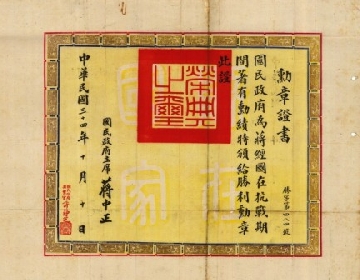 勳章證書
國民政府為蔣經國在抗戰期
間著有勳績特頒給勝利勳章
此證
國民政府主席 蔣中正
中華民國三十四年 十月 十日
榮典之璽